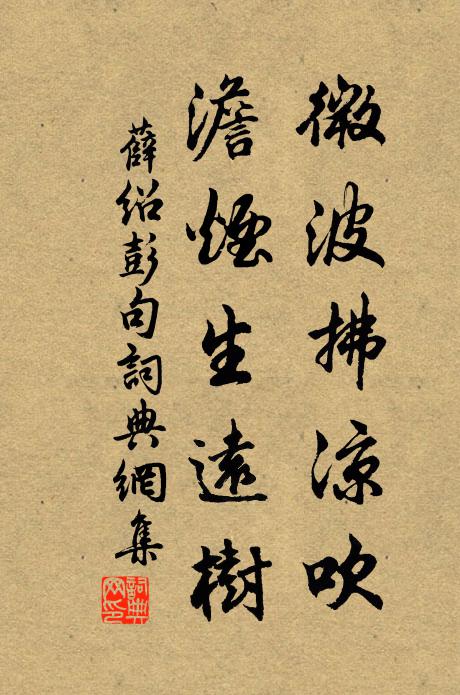 微波拂涼吹
澹煙生遠樹
薛紹彭句詞典網集
詞典网印